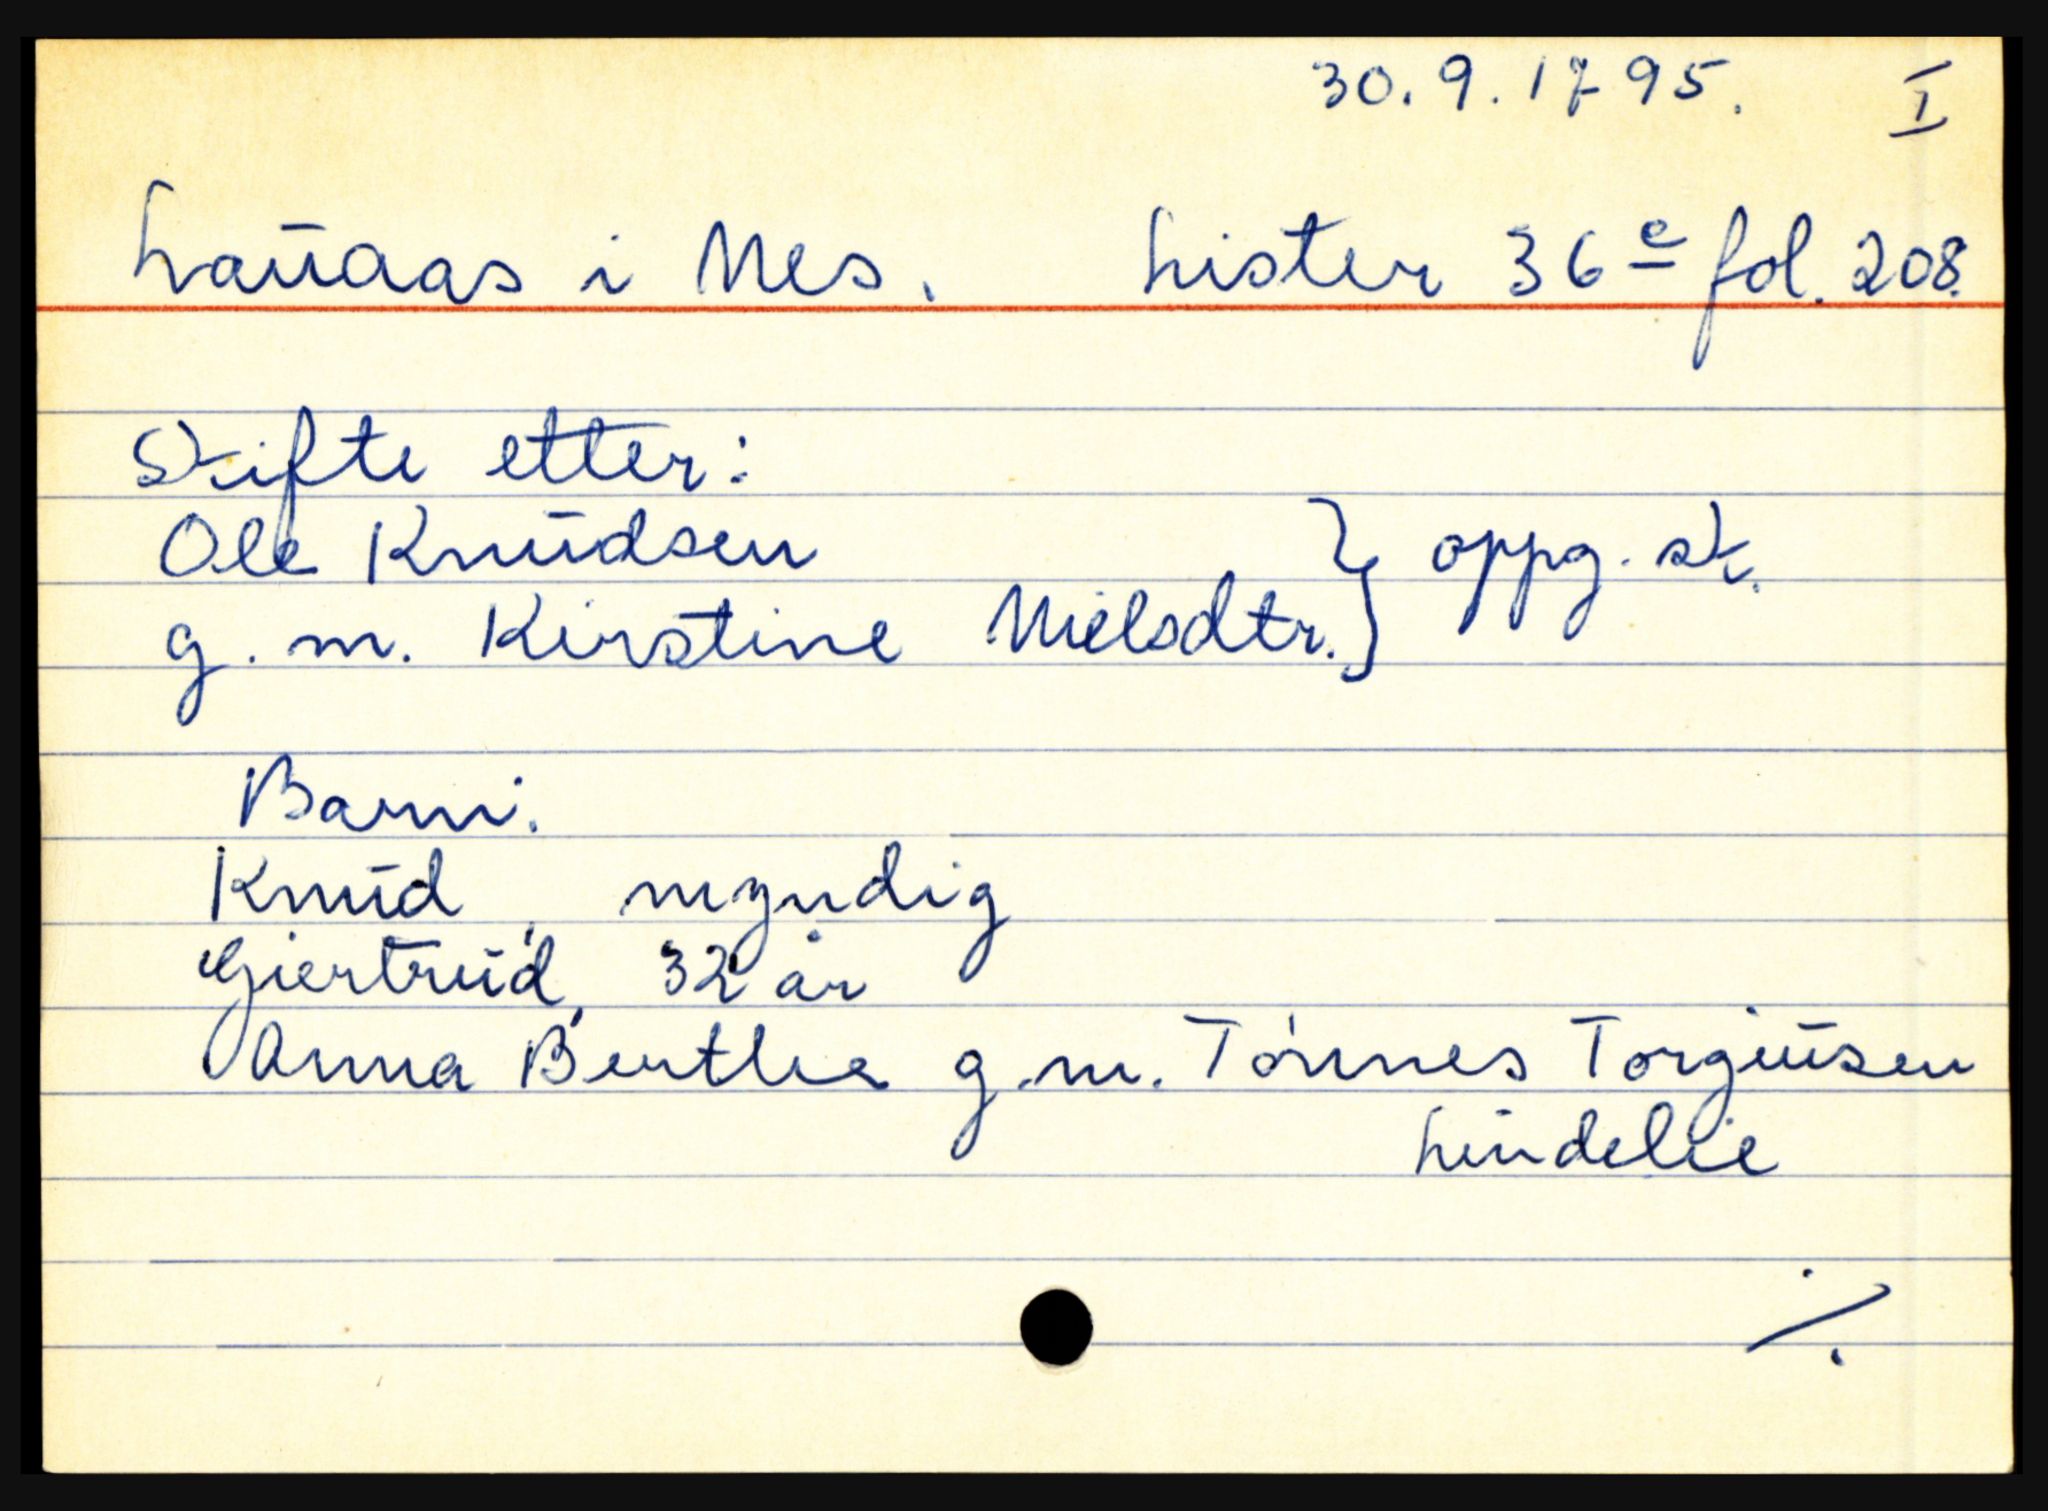 30.9.1795. I
Lauaas i Nes. Lister 36e fol. 208.
Skifte etter:
Ole Knudsen } oppg. sk.
g.m. Kirstine Nielsdtr.
Barn:
Knud, myndig
Giertrud, 32 år
Anna Berthe g.m. Tónnes Torgiusen
Lindelie
./.